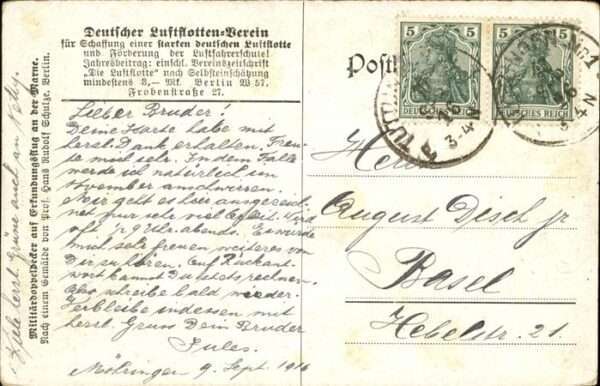 Deutscher Luftflotten-Verein
für Schaffung einer starken deutschen Luftflotte
und Förderung der Luftfahrerschule!
Jahresbeitrag: einschl. Vereinszeitschrift
"Die Luftflotte" nach Selbsteinschätzung
mindestens 3,— Mk. Berlin W 57.
Frobenstraße 27.
Militärdoppeldecker auf Erkundungsflug an der Marne.
Nach einem Gemälde von Prof. Hans Rudolf Schulze, Berlin.
Viele herzl. Grüsse auch an
Lieber Bruder!
Deine Karte habe mit
herzl. Dank erhalten. Freu-
te mich sehr. In dem Falle
werde ich natürlich im
November
Mir geht es hier ausgezeich-
net nur sehr viel Arbeit. Wird
oft 9 Uhr abends. Es würde
mich sehr freuen weiteres von
Dir zu hören. Auf Rückant-
wort kannst Du stets rechnen.
Also schreibe bald wieder.
Verbleibe indessen mit
herzl. Gruss Dein Bruder
Jules.
Möhringen 9. Sept. 1916
Postk
5 5
DEUTSCHES REICH
5 5
DEUTSCHES REICH
TUTTLINGEN
3-4 N
Herrn
August Disch jr
Basel
Hebelstr. 21.